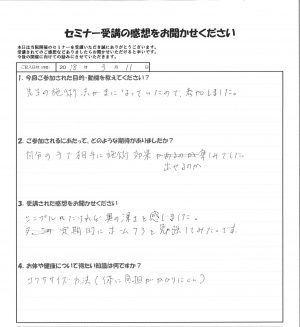 セミナー受講の感想をお聞かせください
本日は当院開催のセミナーを受講いただき誠にありがとうございます。
受講されてのご感想などありましたらお聞かせいただけると幸いです。
今後の開催に向けての励みにさせていただきます。
ご記入日(西暦) 2018年3月11日
1. 今回ご参加された目的・動機を教えてください？
先生の施術法が気になっていたので、参加しました。
2. ご参加されるにあたって、どのような期待がありましたか？
自分の手で相手に施術効果
出せるのか
3. 受講された感想をお聞かせください
シンプルなだけれど奥の深さを感じました。
定期的に
4. お体や健康について得たい知識は何ですか？
エクササイズ方法(体に負担がかかりにくい)